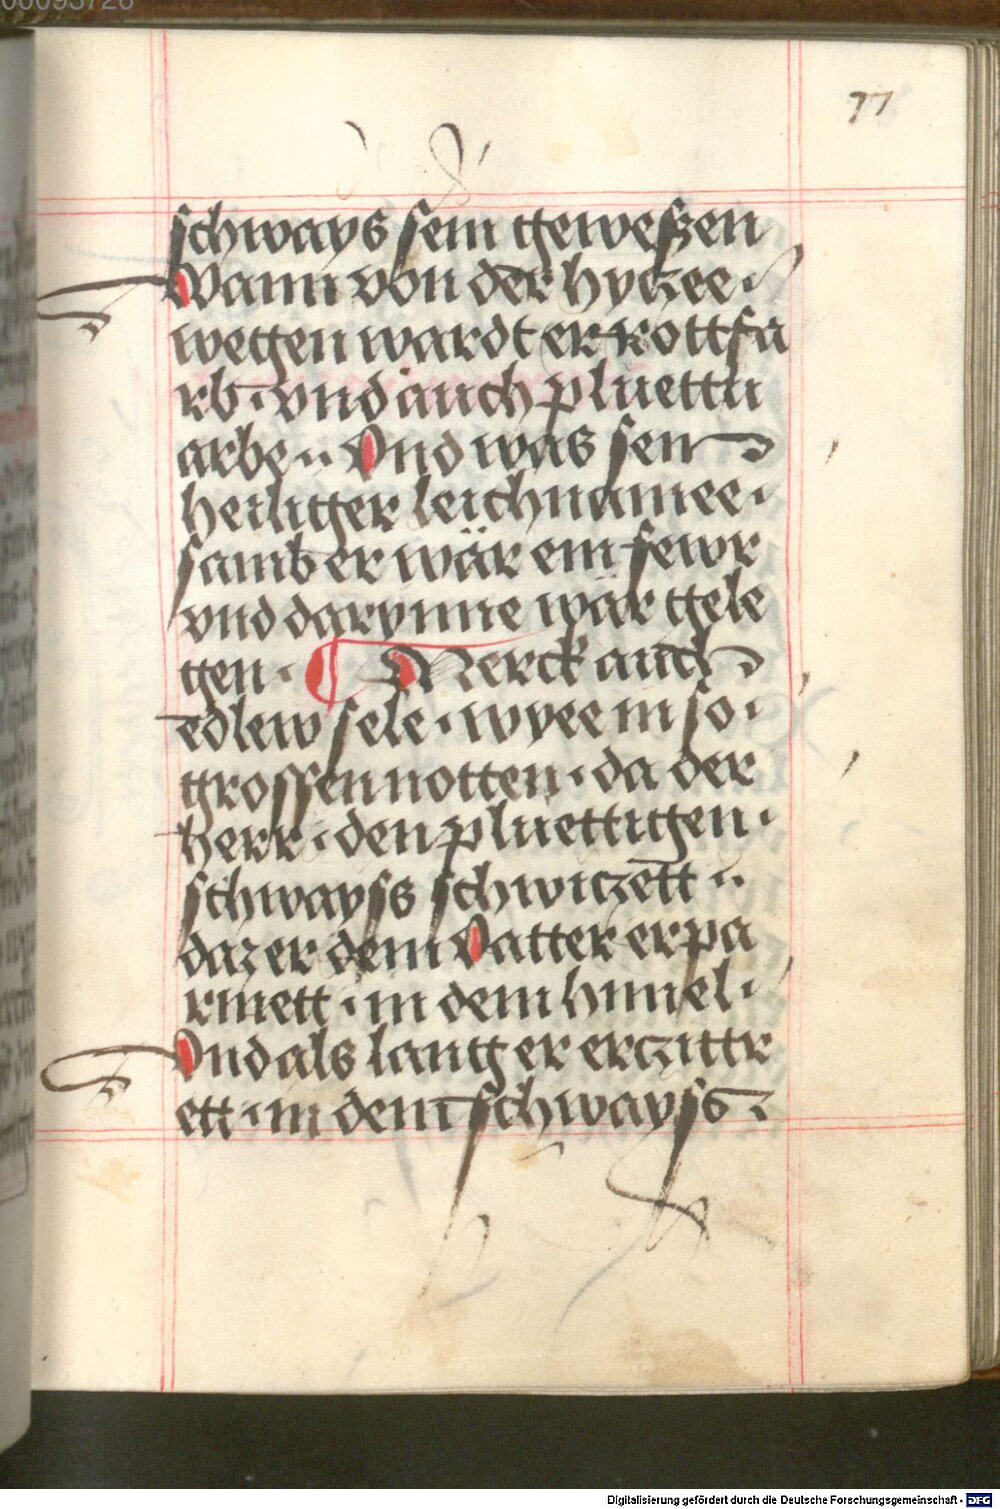 77
schways sein gewessen
Wann von der hyczee·
wegen wardt er rottfa
rb· vnd auch pluettu
arbe·· Vnd was sein
heiliger leichnamee·
samb er wär ein fewr
vnd darynne wär gele
gen· Merck auch
edlew sele· wyee in so·
grossen notten· da der
herr· den pluettigen·
schwayss schwiczett··
daz er dem Vatter erpa
rmett· in dem himel·
Vnd als lang er erczittr
ett· in dem schwayss·
Digitalisierung gefördert durch die Deutsche Forschungsgemeinschaft - DFG